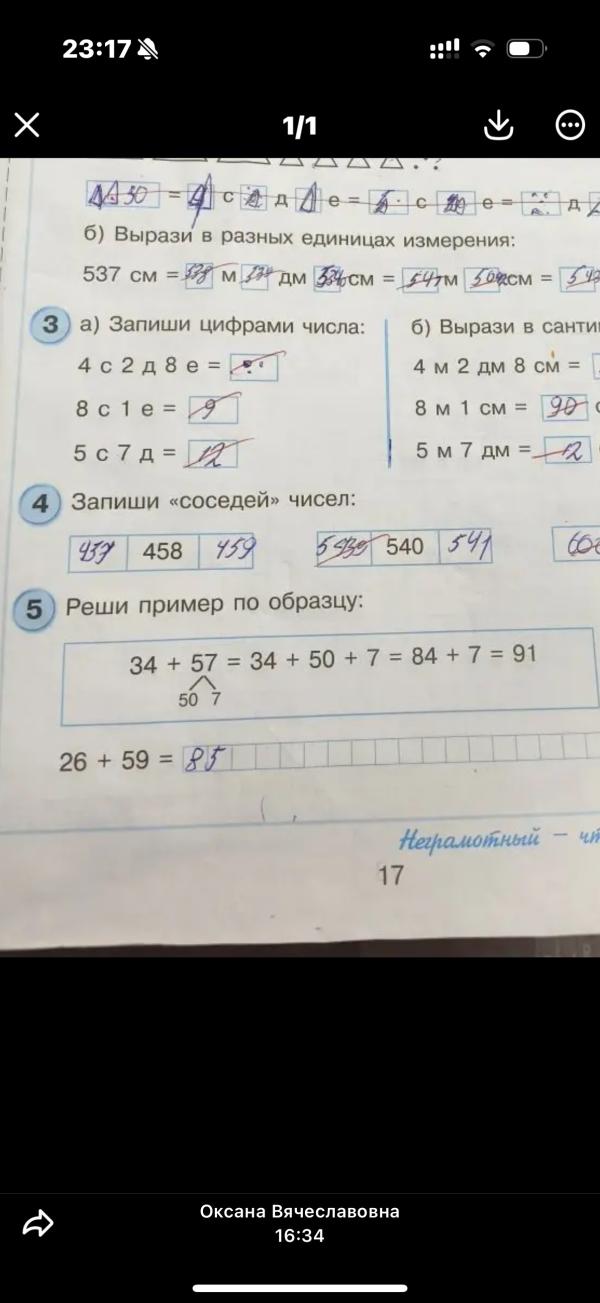 23:17
1/1
30 = 4 с д е = с е = д
б) Вырази в разных единицах измерения:
537 см = м дм см = м см =
3 а) Запиши цифрами числа: б) Вырази в санти
4 с 2 д 8 е = 4 м 2 дм 8 см =
8 с 1 е = 9 8 м 1 см = 90
5 с 7 д = 12 5 м 7 дм = 12
4 Запиши «соседей» чисел:
457 458 459 540 541
5 Реши пример по образцу:
34 + 57 = 34 + 50 + 7 = 84 + 7 = 91
50 7
26 + 59 = 85
Неграмотный –
17
Оксана Вячеславовна
16:34